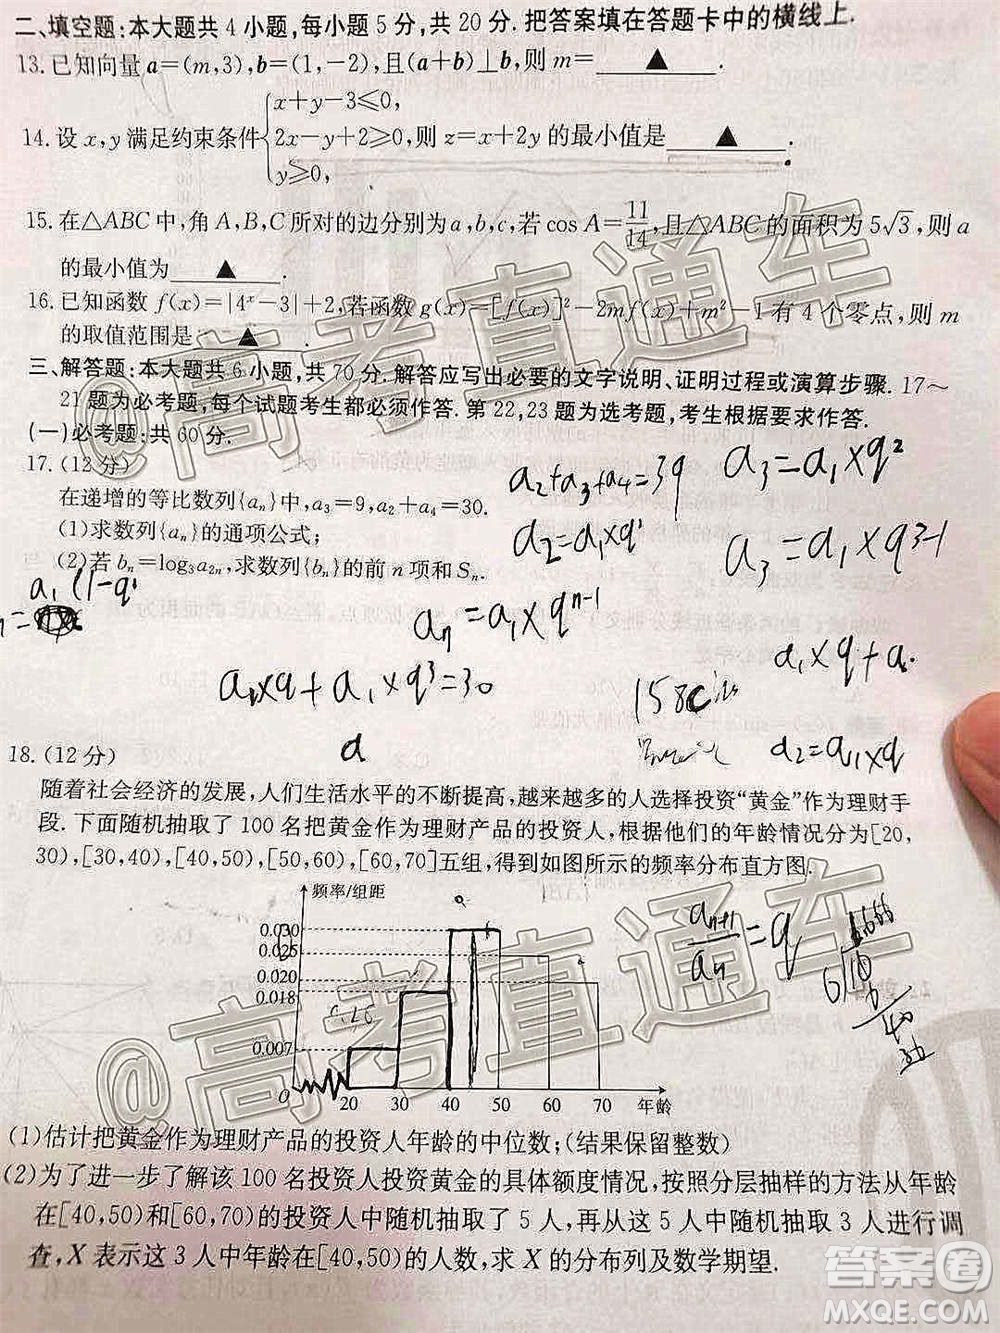 二、填空题:本大题共 4 小题,每小题 5 分,共 20 分.把答案填在答题卡中的横线上.
13.已知向量 a=(m,3),b=(1,-2),且(a+b)⊥b,则 m= ▲ .
14.设 x,y 满足约束条件{x+y-3≤0, 2x-y+2≥0, y≥0, 则 z=x+2y 的最小值是 ▲ .
15.在△ABC 中,角 A,B,C 所对的边分别为 a,b,c,若 cos A=11/14,且△ABC 的面积为 5√3,则 a
的最小值为 ▲ .
16.已知函数 f(x)=|4ˣ-3|+2,若函数 g(x)=[f(x)]²-2mf(x)+m²-1 有 4 个零点,则 m
的取值范围是 ▲ .
三、解答题:本大题共 6 小题,共 70 分.解答应写出必要的文字说明、证明过程或演算步骤.17～
21 题为必考题,每个试题考生都必须作答.第 22,23 题为选考题,考生根据要求作答.
(一)必考题:共 60 分.
17.(12 分)
在递增的等比数列{aₙ}中,a₃=9,a₂+a₄=30.
(1)求数列{aₙ}的通项公式;
(2)若 bₙ=log₃a₂ₙ,求数列{bₙ}的前 n 项和 Sₙ.
a₂+a₃+a₄=39
a₃=a₁×q²
a₂=a₁×q¹
a₃=a₁×q³⁻¹
a₁(1-q
aₙ=a₁×qⁿ⁻¹
a₁×q+a₁×q³=30
a₁×q+a
158c
a
a₂=a₁×q
18.(12 分)
随着社会经济的发展,人们生活水平的不断提高,越来越多的人选择投资“黄金”作为理财手
段.下面随机抽取了 100 名把黄金作为理财产品的投资人,根据他们的年龄情况分为[20,
30),[30,40),[40,50),[50,60),[60,70]五组,得到如图所示的频率分布直方图.
频率/组距
0.030
0.025
0.020
0.018
0.007
O 20 30 40 50 60 70 年龄
aₙ₊₁/aₙ=q
(1)估计把黄金作为理财产品的投资人年龄的中位数;(结果保留整数)
(2)为了进一步了解该 100 名投资人投资黄金的具体额度情况,按照分层抽样的方法从年龄
在[40,50)和[60,70)的投资人中随机抽取了 5 人,再从这 5 人中随机抽取 3 人进行调
查,X 表示这 3 人中年龄在[40,50)的人数,求 X 的分布列及数学期望.
@高考直通车
@高考直通车
答案圈
MXQE.COM